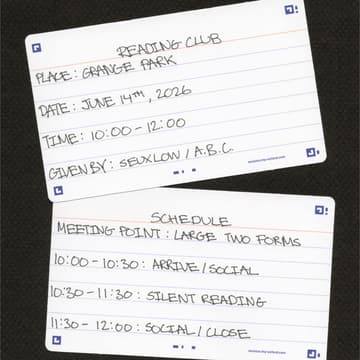 READING CLUB
PLACE: GRANGE PARK
DATE: JUNE 14TH, 2026
TIME: 10:00-12:00
GIVEN BY: SEUXLOW / A.B.C.
SCHEDULE
MEETING POINT: LARGE TWO FORMS
10:00-10:30: ARRIVE/SOCIAL
10:30-11:30: SILENT READING
11:30-12:00: SOCIAL/CLOSE